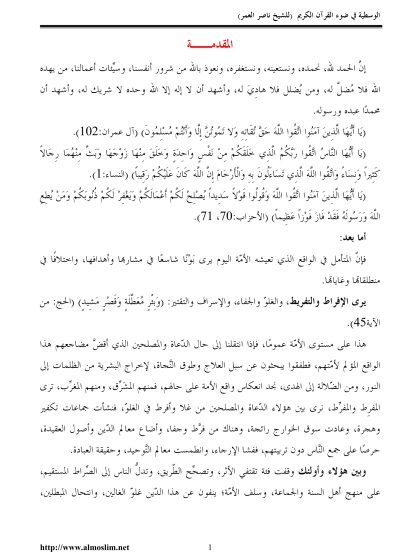 الوسطية في ضوء القرآن الكريم (للشيخ ناصر العمر)
المقدمـــــة
إنَّ الحمد لله، نحمده، ونستعينه، ونستغفره، ونعوذ بالله من شرور أنفسنا، وسيِّئات أعمالنا، من يهده
الله فلا مُضلَّ له، ومن يُضلل فلا هاديَ له، وأشهد أن لا إله إلا الله وحده لا شريك له، وأشهد أن
محمدًا عبده ورسوله.
(يَا أَيُّهَا الَّذِينَ آمَنُوا اتَّقُوا اللَّهَ حَقَّ تُقَاتِهِ وَلا تَمُوتُنَّ إِلَّا وَأَنْتُمْ مُسْلِمُونَ) (آل عمران:102).
(يَا أَيُّهَا النَّاسُ اتَّقُوا رَبَّكُمُ الَّذِي خَلَقَكُمْ مِنْ نَفْسٍ وَاحِدَةٍ وَخَلَقَ مِنْهَا زَوْجَهَا وَبَثَّ مِنْهُمَا رِجَالاً
كَثِيرًا وَنِسَاءً وَاتَّقُوا اللَّهَ الَّذِي تَسَاءَلُونَ بِهِ وَالْأَرْحَامَ إِنَّ اللَّهَ كَانَ عَلَيْكُمْ رَقِيبًا) (النساء:1).
(يَا أَيُّهَا الَّذِينَ آمَنُوا اتَّقُوا اللَّهَ وَقُولُوا قَوْلاً سَدِيدًا يُصْلِحْ لَكُمْ أَعْمَالَكُمْ وَيَغْفِرْ لَكُمْ ذُنُوبَكُمْ وَمَنْ يُطِعِ
اللَّهَ وَرَسُولَهُ فَقَدْ فَازَ فَوْزًا عَظِيمًا) (الأحزاب:70، 71).
أما بعد:
فإنَّ المتأمل في الواقع الذي تعيشه الأمَّة اليوم يرى بَونًا شاسعًا في مشاربها وأهدافها، واختلافًا في
منطلقاتها وغاياتها.
يرى الإفراط والتفريط، والغلوّ والجفاء، والإسراف والتقتير: (وَبِئْرٍ مُعَطَّلَةٍ وَقَصْرٍ مَشِيدٍ) (الحج: من
الآية45).
هذا على مستوى الأمَّة عمومًا، فإذا انتقلنا إلى حال الدّعاة والمصلحين الذي أقضَّ مضاجعهم هذا
الواقع المؤلم لأمّتهم، فطفقوا يبحثون عن سبل العلاج وطوق النّجاة، لإخراج البشرية من الظلمات إلى
النور، ومن الضّلالة إلى الهدى، نجد انعكاس واقع الأمة على حالهم، فمنهم المشرِّق، ومنهم المغرِّب، ترى
المفرِط والمفرِّط، نرى بين هؤلاء الدّعاة والمصلحين من غلا وأفرط في الغلوّ، فنشأت جماعات تكفير
وهجرة، وعادت سوق الخوارج رائجة، وهناك من فرَّط وجفا، وأضاع معالم الدّين وأصول العقيدة،
حرصًا على جمع النَّاس دون تربيتهم، ففشا الإرجاء، وانطمست معالم التّوحيد، وحقيقة العبادة.
وبين هؤلاء وأولئك وقفت فئة تقتفي الأثر، وتصحِّح الطّريق، وتدلُّ الناس إلى الصِّراط المستقيم،
على منهج أهل السنة والجماعة، وسلف الأمَّة؛ ينفون عن هذا الدّين غلوّ الغالين، وانتحال المبطلين،
http://www.almoslim.net
1